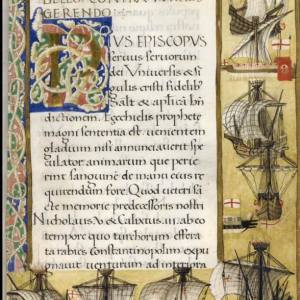 GERENDO
PIUS EPISCOPUS
seruus seruorum
dei Vniuersis & si
gulis cristi fidelib'
Salt & aplicā bn̄
dictionem. Aezechielis prophete
magni sententia est. uenientem
gladium nisi annunciauerit spe
culator animarum que perie
rint sanguinē de manu eius re
quirendum fore. Quod ueteri si
cte memorie predecessores nostri
Nicholaus.V. & Calixtus.iii. ab eo
tempore quo turchorum effera
ta rabies Constantinopolim expu
gnauit uenturum ad interiora